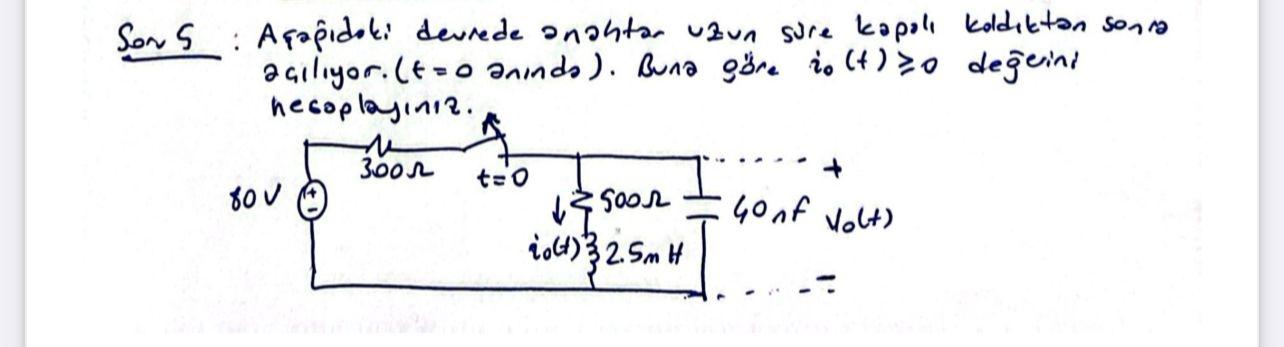 Soru 5 : Aşağıdaki devrede anahtar uzun süre kapalı kaldıktan sonra
açılıyor. (t=0 anında). Buna göre i₀(t)≥0 değerini
hesaplayınız.
300Ω
t=0
80V
+
500Ω
40nf
V₀(t)
i₀(t)
2.5mH